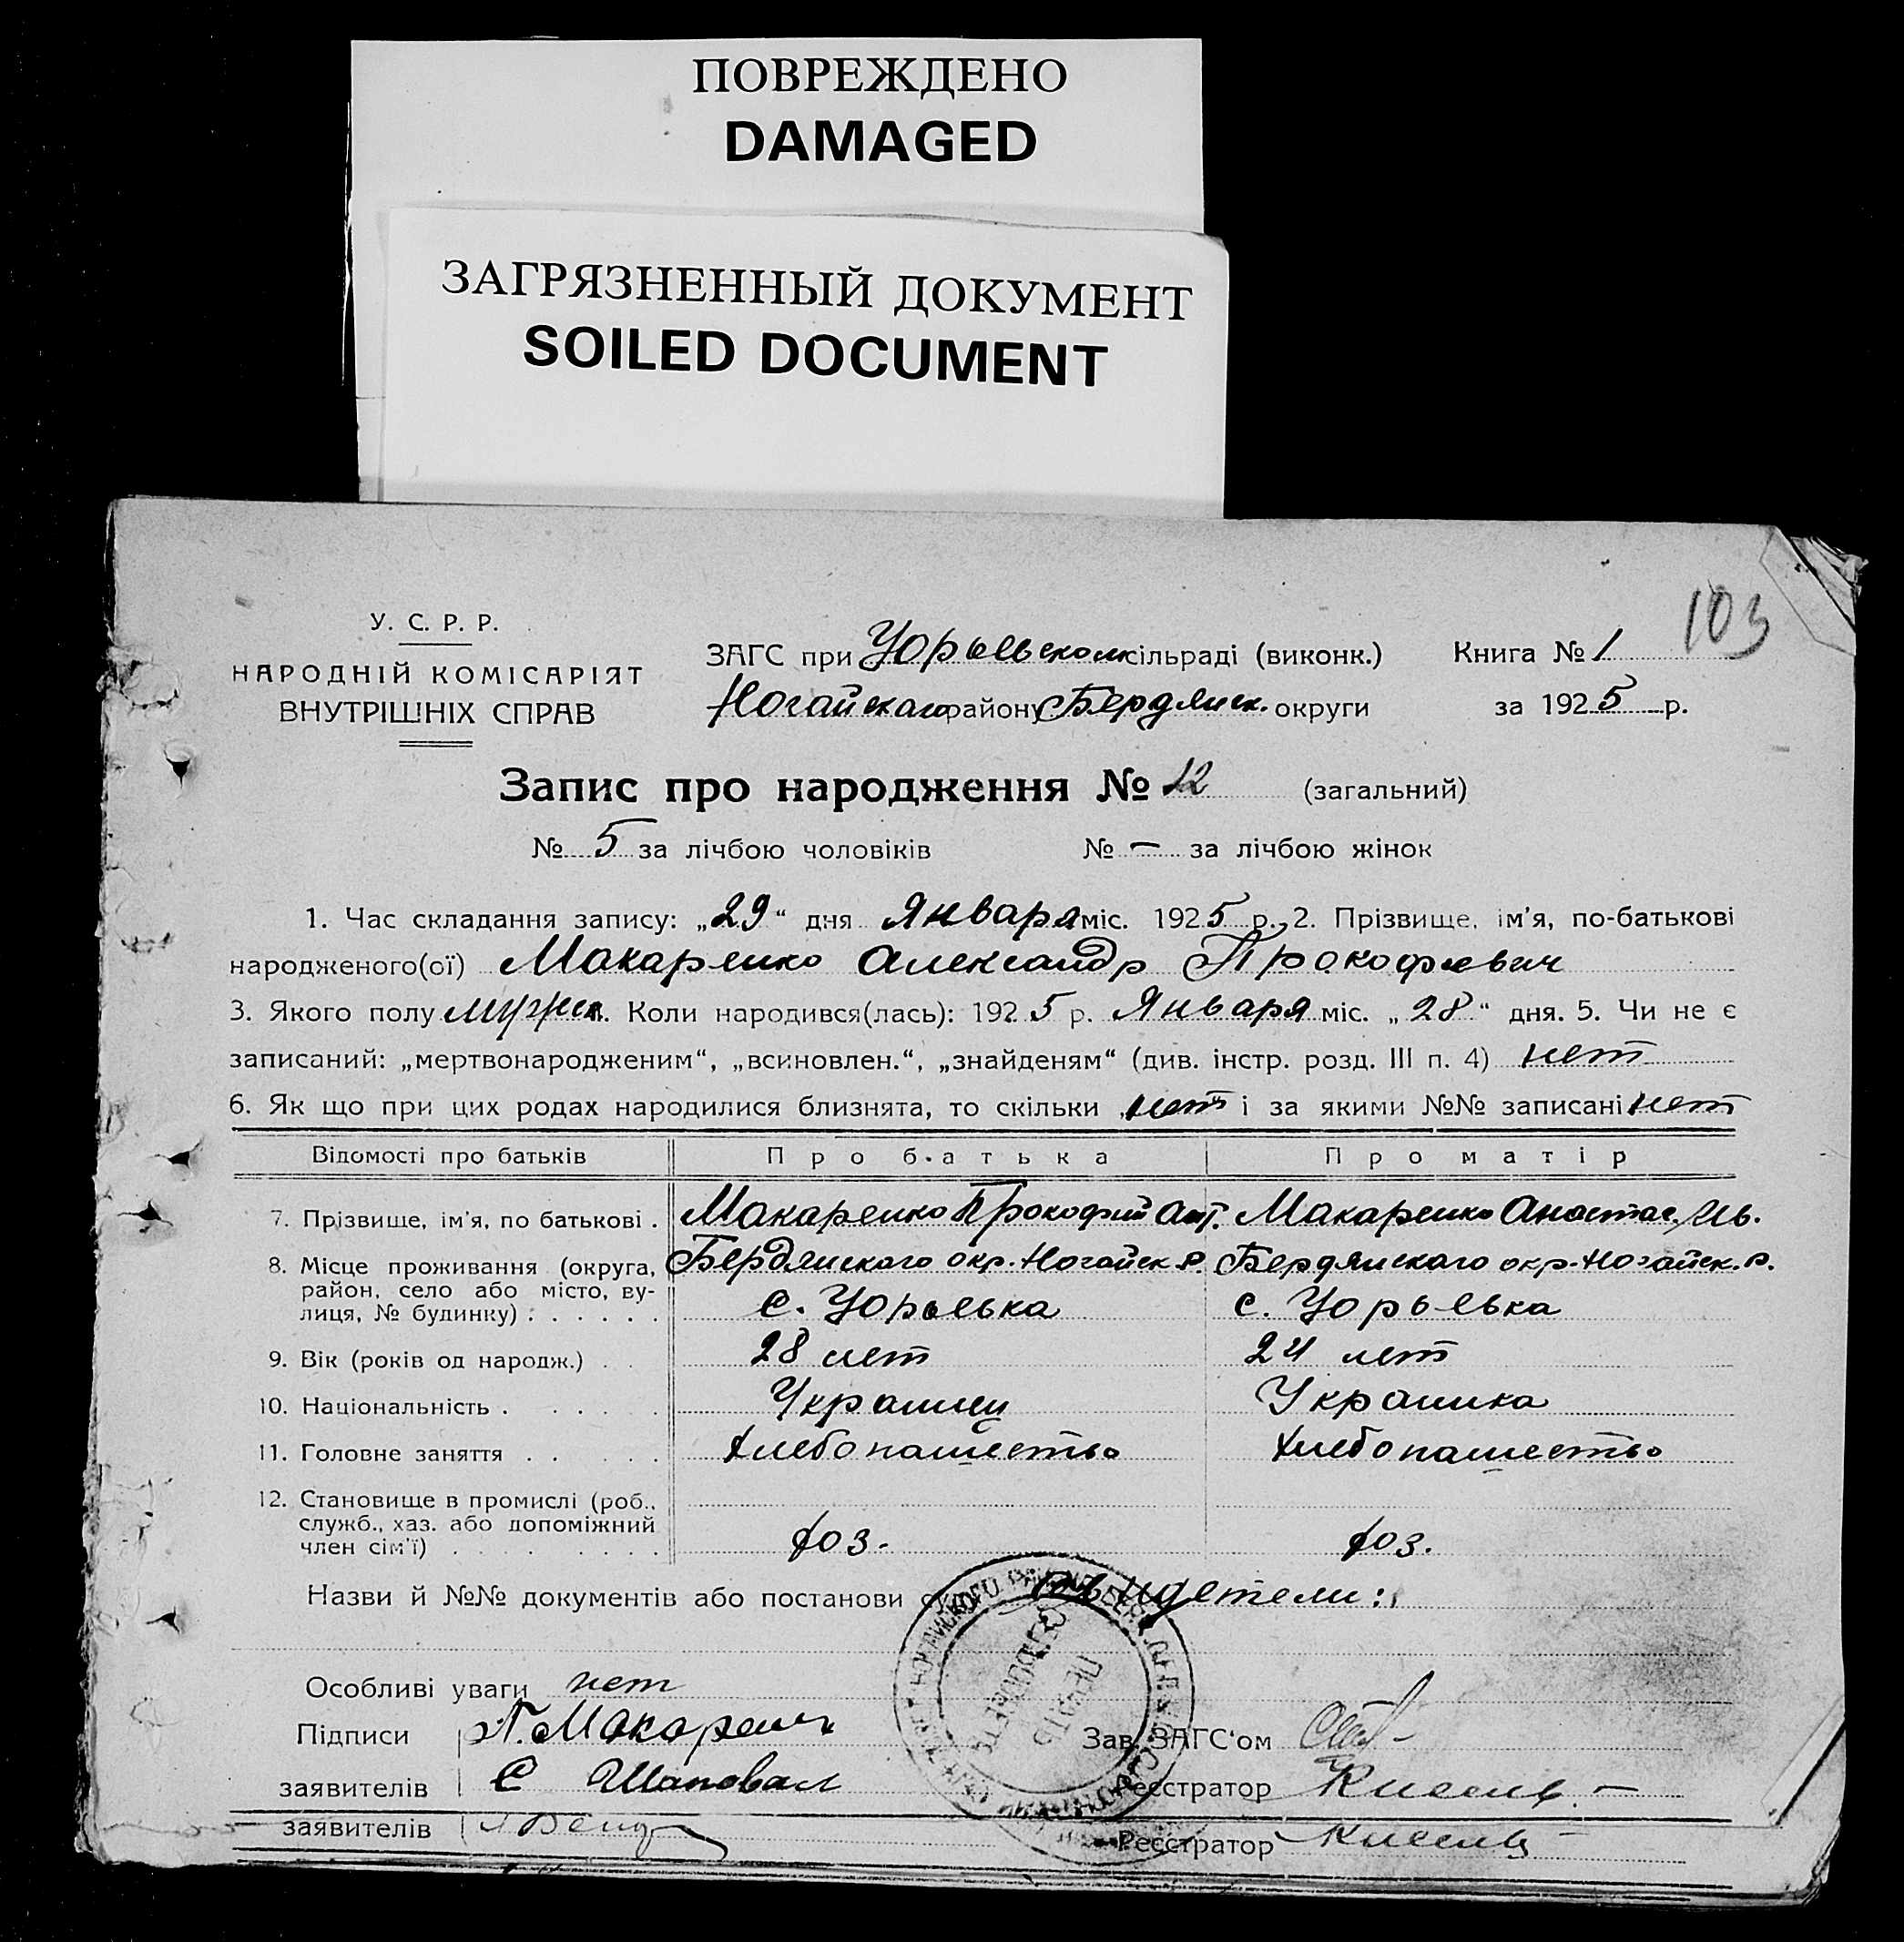 ПОВРЕЖДЕНО
DAMAGED
ЗАГРЯЗНЕННЫЙ ДОКУМЕНТ
SOILED DOCUMENT
103
У. С. Р. Р.
НАРОДНІЙ КОМІСАРІЯТ
ВНУТРІШНІХ СПРАВ
ЗАГС при Юрьевском сільраді (виконк.) Книга № 1
Ногайскаго району Бердянск. округи за 1925 р.
Запис про народження № 12 (загальний)
№ 5 за лічбою чоловіків № — за лічбою жінок
1. Час складання запису: „29“ дня Января міс. 1925 р. 2. Прізвище, ім'я, по-батькові
народженого(ої) Макаренко Александр Прокофиевич
3. Якого полу мужск. Коли народився(лась): 1925 р. Января міс. „28“ дня. 5. Чи не є
записаний: „мертвонародженим“, „всиновлен.“, „знайденям“ (див. інстр. розд. III п. 4) нет
6. Як що при цих родах народилися близнята, то скільки „нет“ і за якими №№ записані нет
Відомості про батьків Про батька Про матір
7. Прізвище, ім'я, по батькові . Макаренко Прокофий Ант. Макаренко Анастас. Ив.
8. Місце проживання (округа, район, село або місто, вулиця, № будинку) : Бердянскаго окр. Ногайск. р. Бердянскаго окр. Ногайск. р.
с. Юрьевка с. Юрьевка
9. Вік (років од народж.) . . 28 лет 24 лет
10. Національність . Украинец Украинка
11. Головне заняття . . Хлебопашество Хлебопашество
12. Становище в промислі (роб., служб., хаз. або допоміжний член сім'ї) Хоз. Хоз.
Назви й №№ документів або постанови Свидетели:
Особливі уваги нет
Підписи П. Макаренк Зав. ЗАГС'ом
заявителів С Шаповал Реєстратор Кисель. —
заявителів Реєстратор Кисель